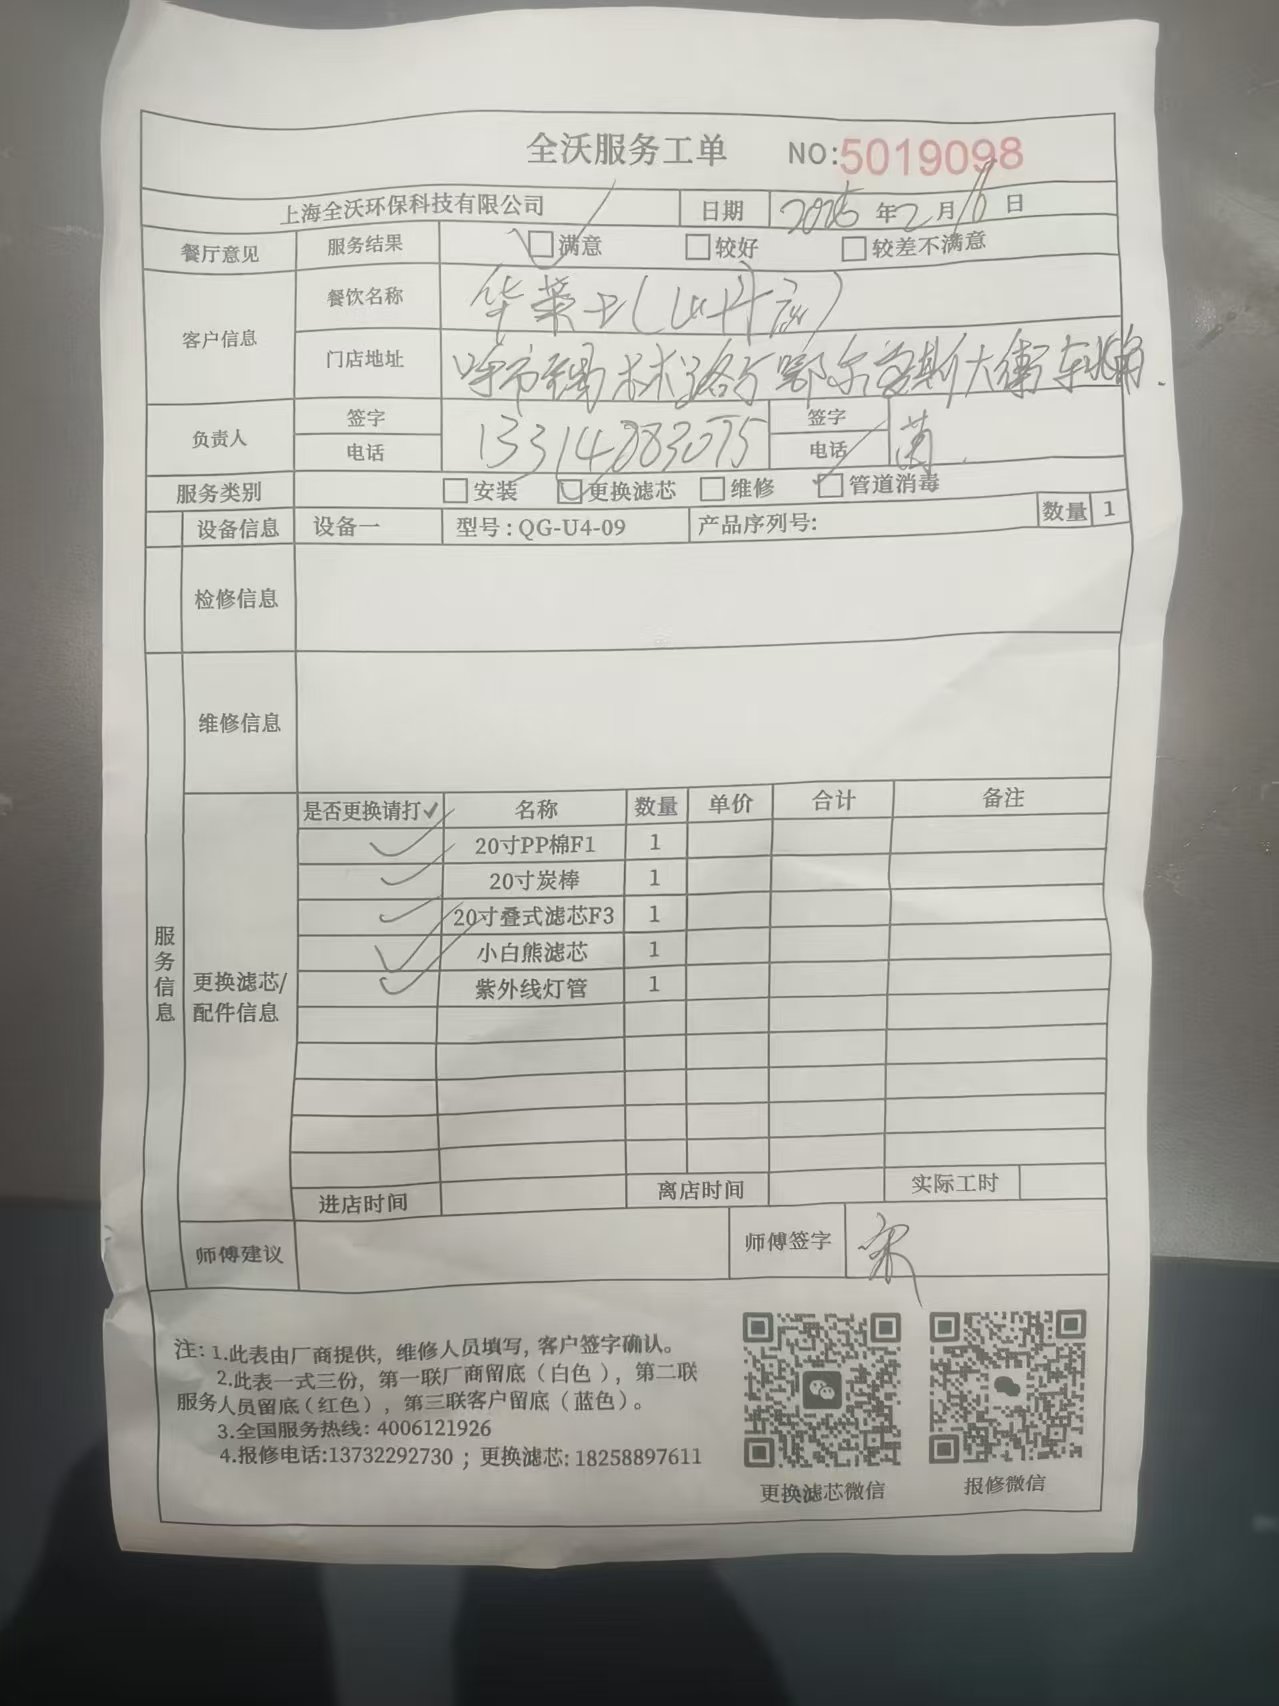 全沃服务工单 NO:5019098
上海全沃环保科技有限公司 日期 2025年2月16日
餐厅意见 服务结果 满意 较好 较差不满意
客户信息 餐饮名称 华莱士
门店地址 呼市锡林 鄂尔多斯大街东北角.
负责人 签字 签字 菌
电话 电话
服务类别 安装 更换滤芯 维修 管道消毒
设备信息 设备一 型号:QG-U4-09 产品序列号: 数量 1
检修信息
维修信息
服务信息
更换滤芯/
配件信息
是否更换请打✓ 名称 数量 单价 合计 备注
✓ 20寸PP棉F1 1
✓ 20寸炭棒 1
✓ 20寸叠式滤芯F3 1
✓ 小白熊滤芯 1
✓ 紫外线灯管 1
进店时间 离店时间 实际工时
师傅建议 师傅签字 宋
注: 1.此表由厂商提供，维修人员填写, 客户签字确认。
2.此表一式三份，第一联厂商留底（白色 ），第二联
服务人员留底（红色），第三联客户留底（蓝色）。
3.全国服务热线: 4006121926
4.报修电话:13732292730 ；更换滤芯: 18258897611
更换滤芯微信 报修微信